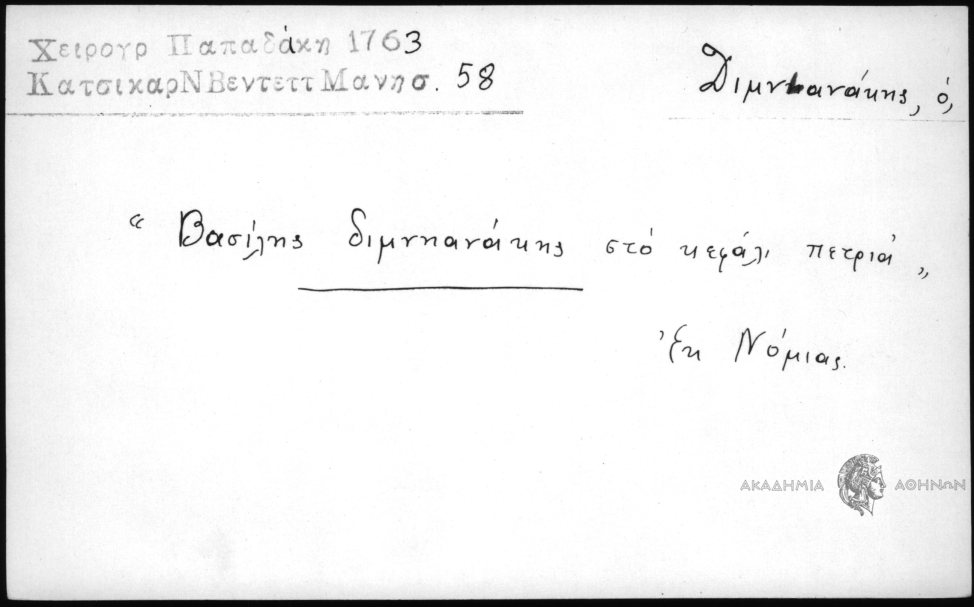 Χειρογρ Παπαδάκη 1763
ΚατσικαρΝΒεντεττΜανησ. 58
Διμνιανάκης, ὁ,
“ Βασίλης διμνιανάκης στό κεφάλι πετριά „
Ἐκ Νόμιας.
ΑΚΑΔΗΜΙΑ ΑΘΗΝΩΝ